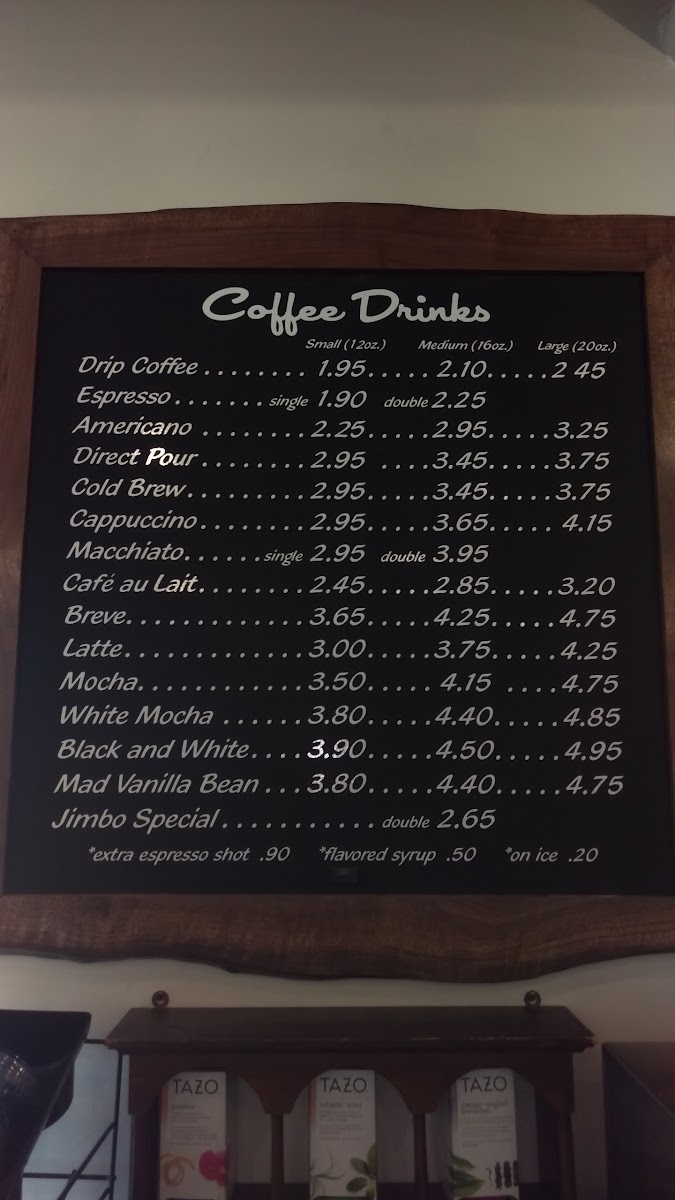 Coffee Drinks
Small (12oz.) Medium (16oz.) Large (20oz.)
Drip Coffee ........ 1.95..... 2.10.....2 45
Espresso.......single 1.90 double 2.25
Americano ........2.25.....2.95.....3.25
Direct Pour........2.95 ....3.45.....3.75
Cold Brew.........2.95.....3.45.....3.75
Cappuccino........2.95.....3.65..... 4.15
Macchiato......single 2.95 double 3.95
Café au Lait........2.45.....2.85.....3.20
Breve.............3.65.....4.25.....4.75
Latte..............3.00.....3.75.....4.25
Mocha............3.50..... 4.15 ....4.75
White Mocha ......3.80.....4.40.....4.85
Black and White....3.90.....4.50.....4.95
Mad Vanilla Bean ...3.80.....4.40.....4.75
Jimbo Special...........double 2.65
*extra espresso shot .90 *flavored syrup .50 *on ice .20
TAZO TAZO TAZO